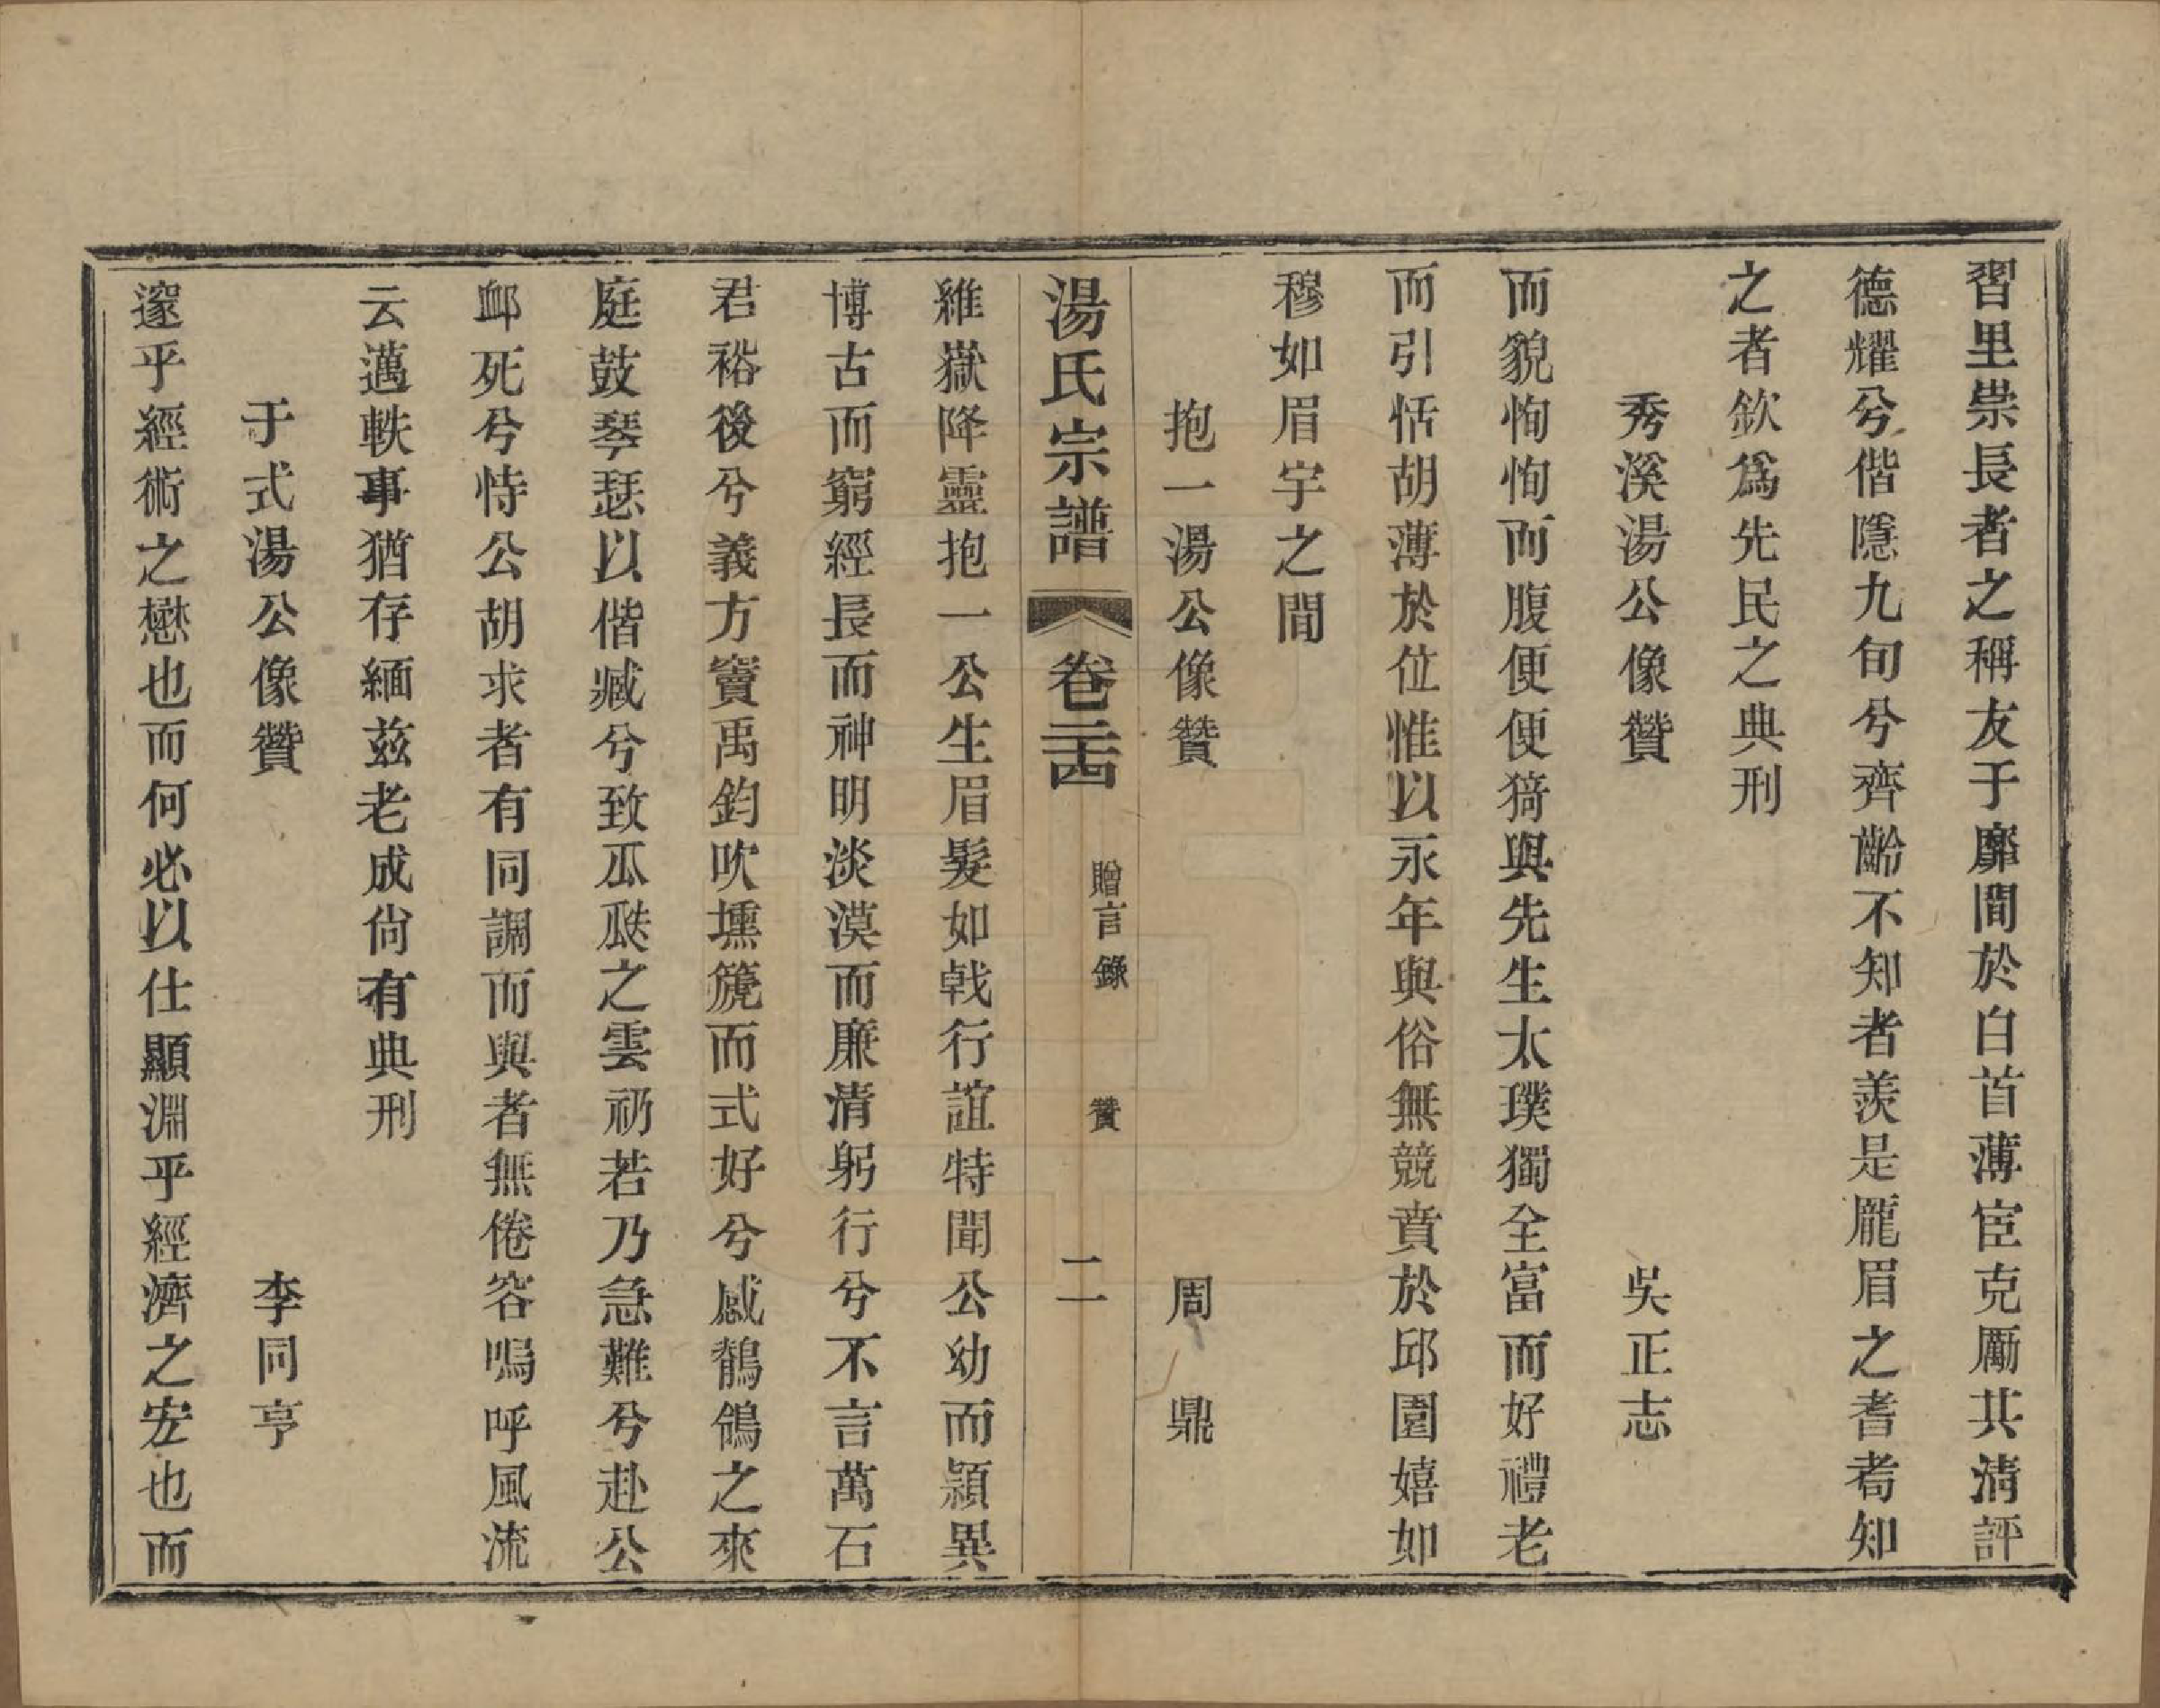 習里崇長者之稱友于靡間於白首薄宦克勵其清評
德耀兮偕隱九旬兮齊齡不知者羨是龐眉之耆耇知
之者欽爲先民之典刑
秀溪湯公像贊 吳正志
而貌恂恂而腹便便猗與先生太璞獨全富而好禮老
而引恬胡薄於位惟以永年與俗無競賁於邱園嬉如
穆如眉宇之間
抱一湯公像贊 周鼎
湯氏宗譜 卷二十四 贈言錄 贊 二
維嶽降靈抱一公生眉髮如戟行誼特聞公幼而穎異
博古而窮經長而神明淡漠而廉清躬行兮不言萬石
君裕後兮義方竇禹鈞吹壎篪而式好兮感鶺鴒之來
庭鼓琴瑟以偕臧兮致瓜瓞之雲礽若乃急難兮赴公
卹死兮恃公胡求者有同調而與者無倦容嗚呼風流
云邁軼事猶存緬茲老成尙有典刑
于式湯公像贊 李同亨
邃乎經術之懋也而何必以仕顯淵乎經濟之宏也而